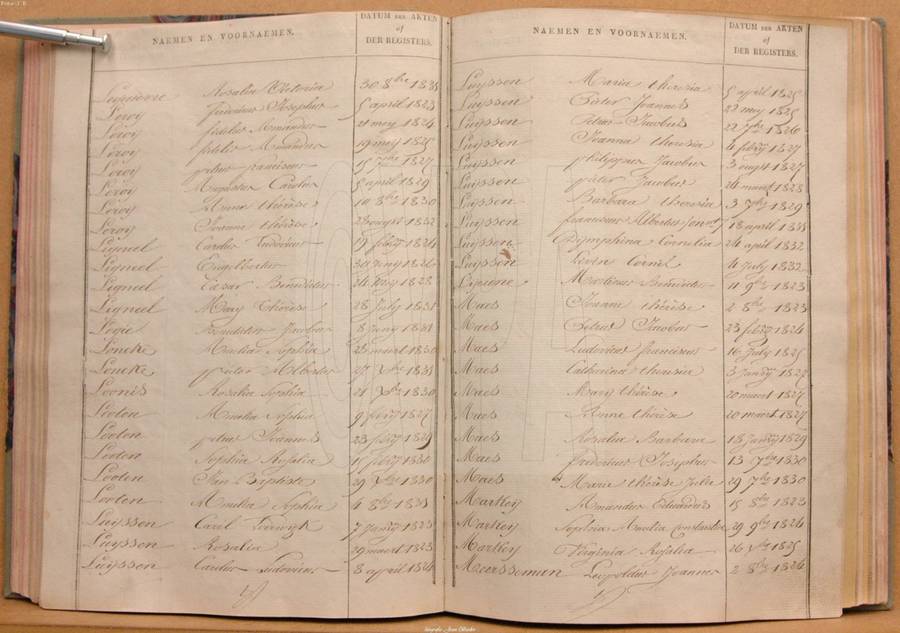 NAEMEN EN VOORNAEMEN.
DATUM DER AKTEN
of
DER REGISTERS.
Rosalia Victoria 30 8bre 1831
Leroy Ludovicus Josephus 5 april 1823
Leroy fidelis Armandus 21 mey 1824
Leroy fidelis Amandus 19 mey 1825
Leroy petrus franciscus 15 7bre 1827
Leroy Augustus Carolus 5 april 1829
Leroy Anna thérèse 10 8bre 1830
Leroy Joanna thérèse 1832
Ligneel Carolus Ludovicus 19 febry 1824
Ligneel Engelbertus 30 1826
Ligneel Cesar Benedictus 1828
Ligneel Mary Thérèse 28 July 1831
Logie Benedictus Jacobus 8 Juny 1831
Loncke Amelia Sophia 25 maert 1830
Loncke pieter Albertus 27 Xbre 1831
Loonis Rosalia Sophia 21 Xbre 1830
Looten Amelia Sophia 9 febry 1827
Looten petrus Joannes 23 febry 1829
Looten Sophia Rosalia 15 febry 1830
Looten Jan Baptiste 29 Xbre 1830
Looten Amelia Sophia 4 8bre 1831
Luyssen Carel Lodewyk 7 Janry 1823
Luyssen Rosalia 29 maert 1823
Luyssen Carolus Ludovicus 8 april 1824
NAEMEN EN VOORNAEMEN.
DATUM DER AKTEN
of
DER REGISTERS.
Luyssen Maria theresia 5 april 1825
Luyssen Pieter Joannes 22 mey 1825
Luyssen Petrus Jacobus 22 7bre 1826
Luyssen Joanna theresia 4 febry 1827
Luyssen philippus Jacobus 3 augst 1827
Luyssen pieter Jacobus 26 maert 1828
Luyssen Barbara theresia 3 7bre 1829
Luyssen franciscus Albertus 18 april 1831
Luyssen Dymphina Cornelia 24 april 1832
Luyssen Livin Cornel 4 July 1832
Martinus Benedictus 11 9bre 1823
Maes Joanna thérèse 2 8bre 1823
Maes Petrus Jacobus 23 febry 1824
Maes Ludovicus franciscus 16 July 1825
Maes Catharina theresia 3 Janry 1827
Maes Mary thérèse 20 maert 1827
Maes Anna thérèse 20 maert 1827
Maes Rosalia Barbara 18 Janry 1829
Maes fredericus Josephus 13 7bre 1830
Maes Marie thérèse Julie 29 7bre 1830
Markey Amandus Eduardus 15 8bre 1823
Markey Sophia Amelia 29 9bre 1824
Markey Virginia Rosalia 26 Xbre 1825
Meersseman Leopoldus Joannes 2 8bre 1826